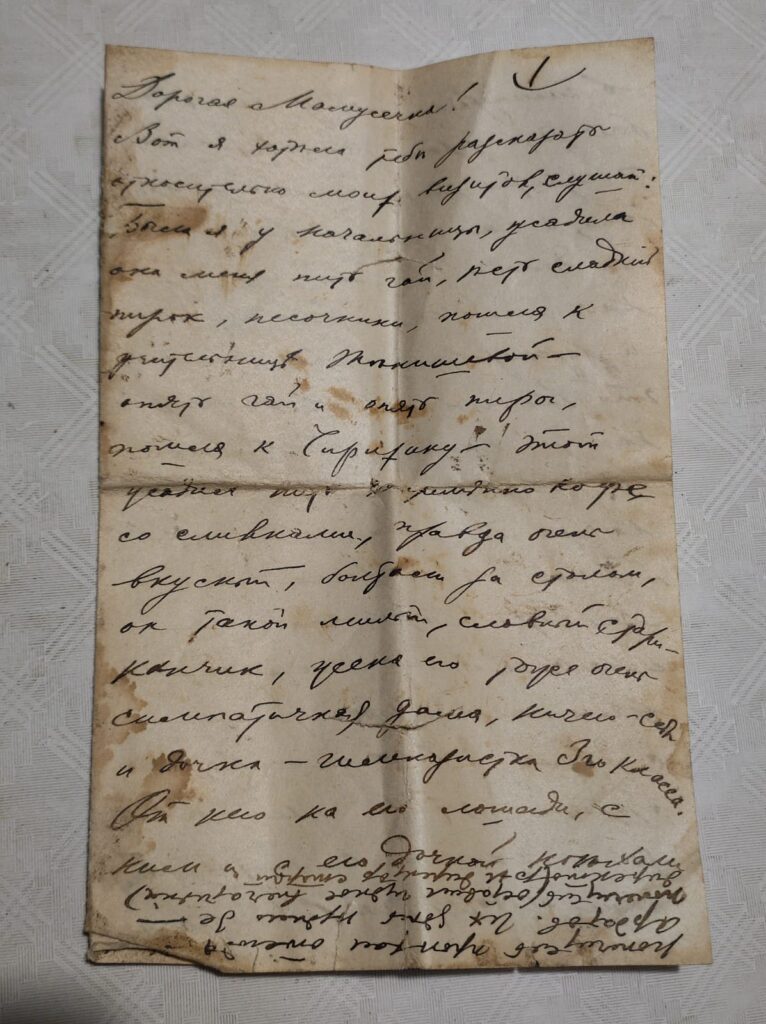 1
Дорогая Мамусечка!
Вот я хотѣла тебѣ разсказать
относительно моих визитов, слушай:
Была я у начальницы, усадила
она меня пить чай, ѣсть сладкій
пирог, песочники, пошла к
учительницѣ
опять чай и опять пиры,
пошла к этот
усадил пить кофе
со сливками, правда очень
вкусный, болтали за столом,
он такой милый, славный стари-
канчик, жена его тоже очень
симпатичная дама, ничего себѣ
и дочка – гимназистка 3го класса.
От него на его лошади, с
ним и с его дочкой поѣхали